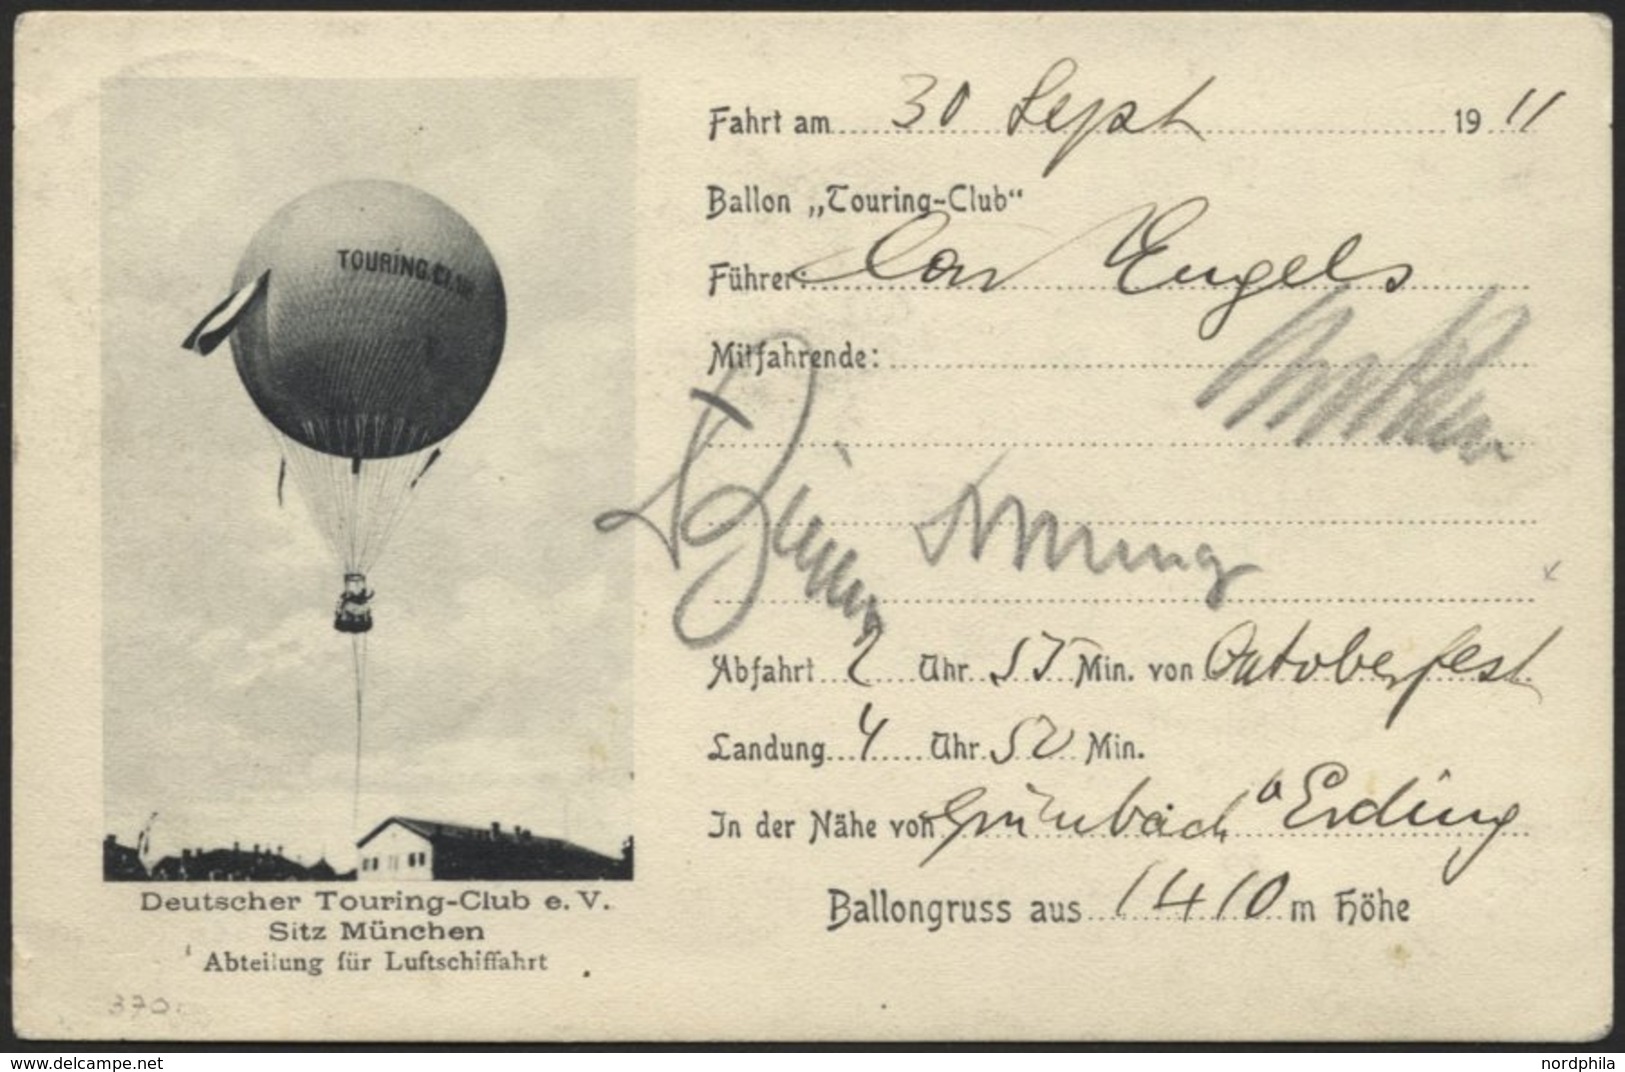 TOURING-CLUB
Deutscher Touring-Club e. V.
Sitz München
Abteilung für Luftschiffahrt
370.
Fahrt am 30 Sept 1911
Ballon „Touring-Club“
Führer: Engels
Mitfahrende:
Abfahrt 2 Uhr 55 Min. von Oktoberfest
Landung 4 Uhr 50 Min.
In der Nähe von Grünbach b Erding
Ballongruss aus 1410 m Höhe
www.delcampe.net
nordphila